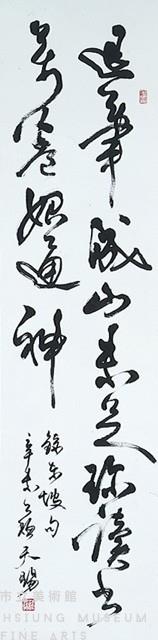 退筆成山未足珍讀書
萬卷始通神
錄東坡句
辛未之頌天賜
市立美術館
HSIUNG MUSEUM
FINE ARTS